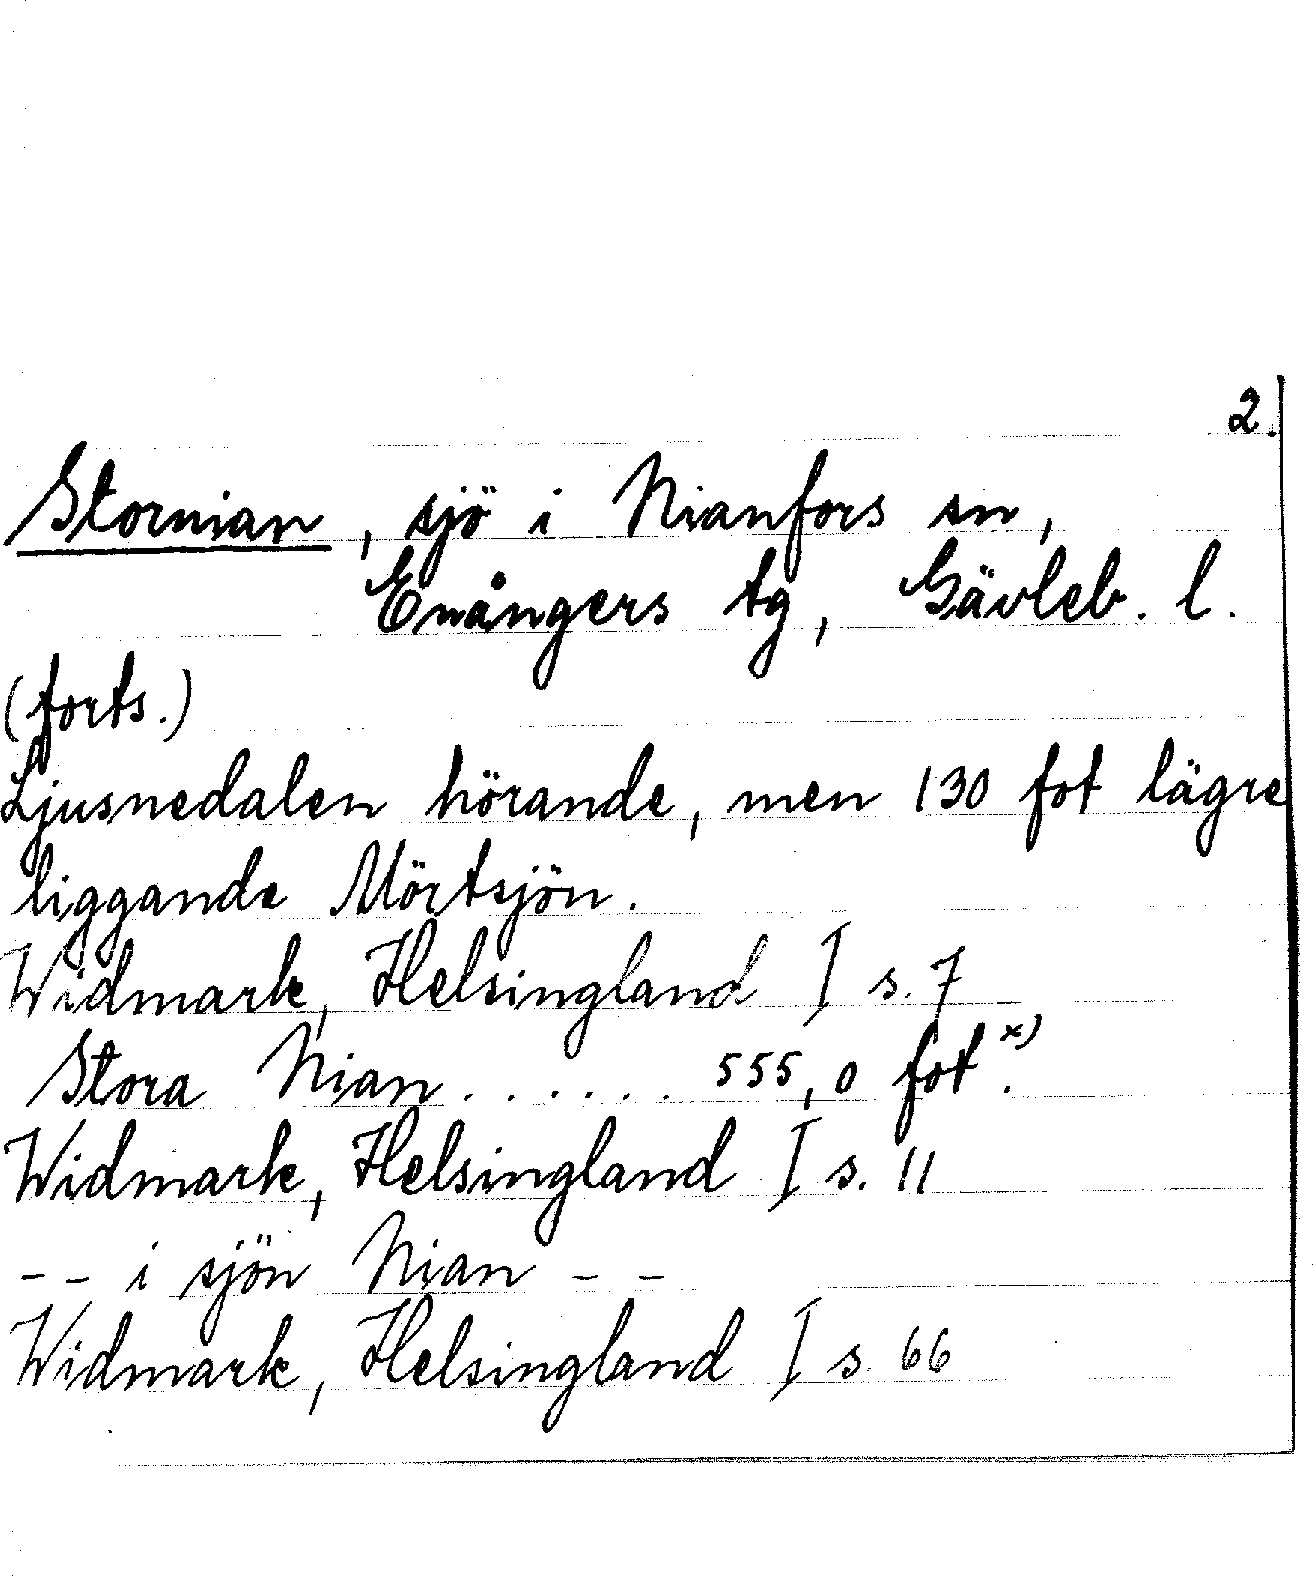 2.
Stornian, sjö i Nianfors sn,
Enångers tg, Gävleb. l.
(forts.)
Ljusnedalen hörande, men 130 fot lägre
liggande Mörtsjön.
Widmark, Helsingland I s. 7
Stora Nian. . . . . . 555,0 fot x).
Widmark, Helsingland I s. 11
-- i sjön Nian --
Widmark, Helsingland I s. 66